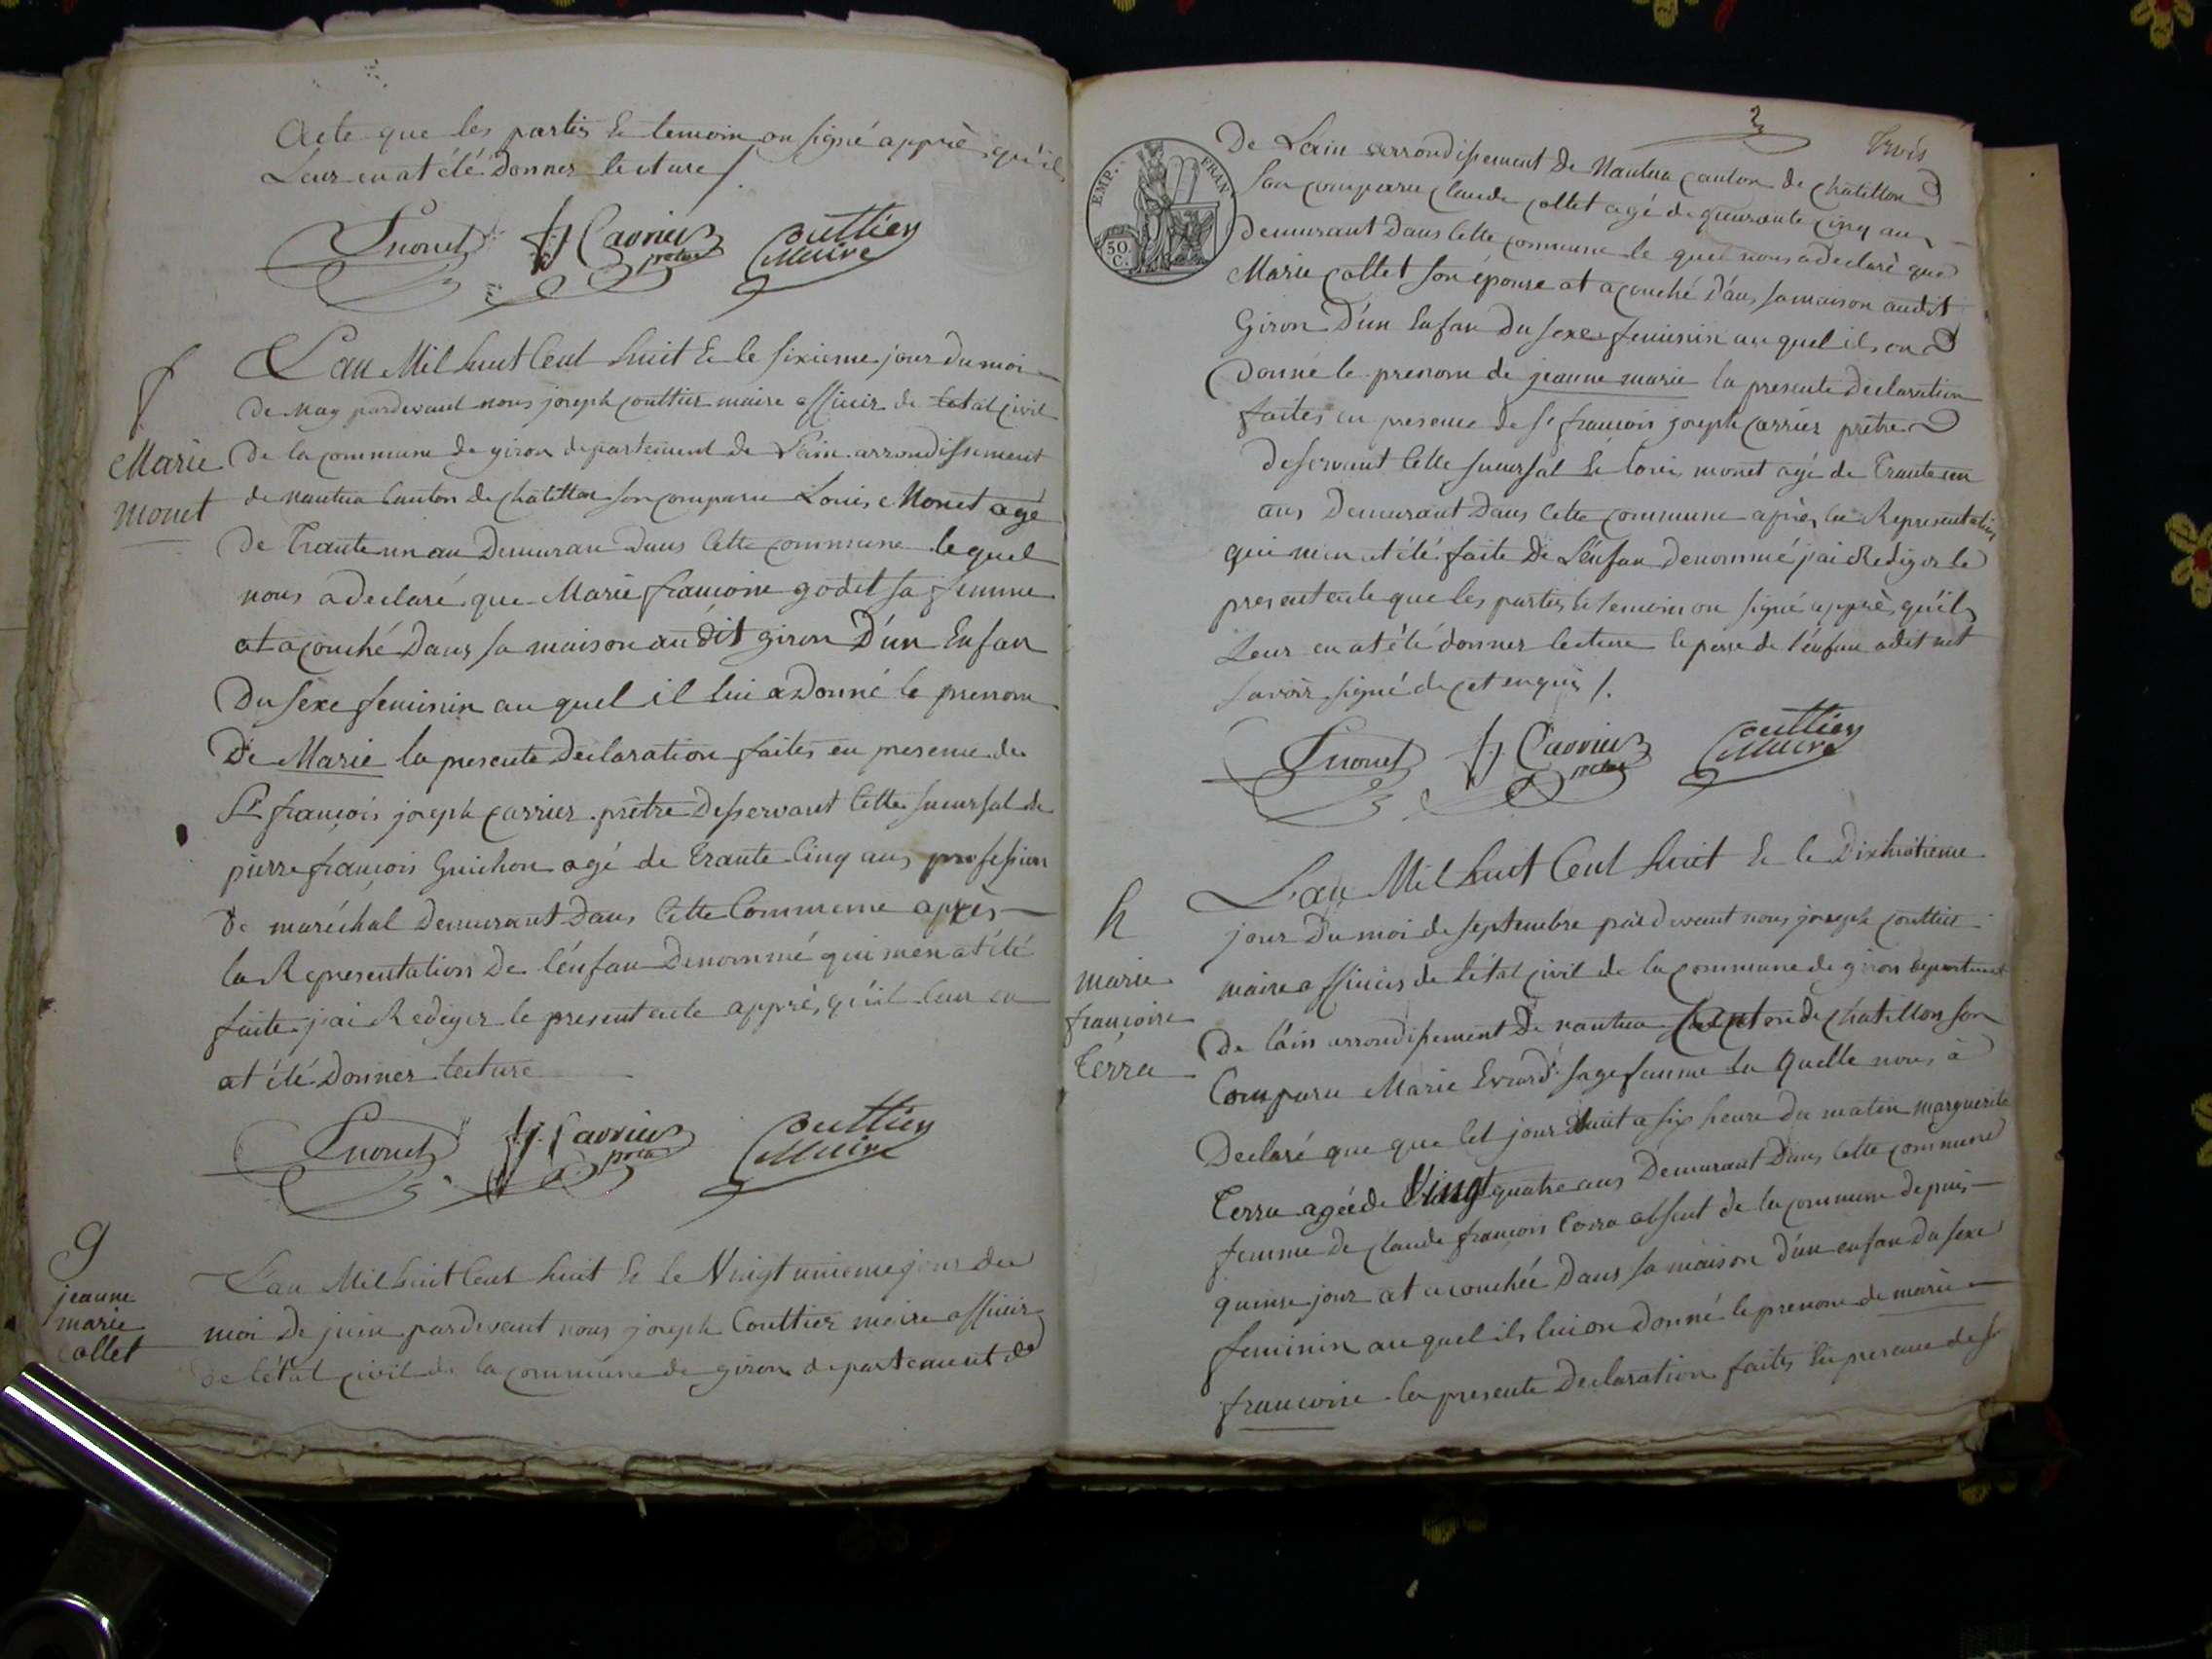 Acte que les partis & temoin on signé apprè qu'il
Leur en at été Donner lecture /.
Lmonet fj Carrier prêtre Couttier Maire
f
Marie
monet
L'an Mil huit Cent huit & le sixieme jour du moi
De May pardevant nous joseph couttier maire officir de letat civil
De la commune de giron departement de L'ain arrondissement
de nantua Canton de chatillon son comparu Louis Monet agé
De Trante un an Demuran dans Cette commune le quel
nous à declaré que Marie françoise godet sa femme
at acouché Dans sa maison au dit giron D'un Enfan
Du sexe feminin au quel il lui a Donné le prenom
De Marie la presente Declaration faites en presence de
Sr françois joseph carrier prêtre Desservant Cette sucursal de
pierre françois Guichon agé de trante Cinq ans profession
De maréchal Demurant Dans Cette Commune après
la Representation De l'énfan Denommé qui m'en at été
faite j'ai Rediger le present acte apprè qu'il leur en
at été Donner lecture
Lmonet fj. Carrier prêtre Couttier Maire
g
jeanne
marie
Collet
L'an Mil huit Cent huit & le Vingt unieme jour du
moi De juin pardevant nous joseph Couttier maire officir
De l'état civil de la commune de giron departement de
3 Trois
EMP. FRAN
50
C.
De Lain arrondissement de Nantua canton de chatillon
son comparu claude collet agé de quarante cinq an
Demurant Dans Cette commune le quel nous a declaré que
Marie collet son épouse at acouché Dans sa maison au dit
Giron D'un Enfan Du sexe feminin au quel ils on
Donné le prenom de jeanne marie la presente Declaration
faites en presence de Sr françois joseph carrier prêtre
Deservant Cette sucursal & Louis monet agé de Trante un
ans Demurant Dans Cette commune après la Representation
qui m'en at été faite De L'énfan Denommé j'ai Rediger le
present acte que les partis & temoin on signé apprè qu'il
Leur en at été donner lecture le pere de l'énfan a dit net
savoir signé de cet enquis /.
Lmonet fj Carrier prêtre Couttier Maire
h
marie
françoise
Terra
L'an Mil huit Cent huit & le Dixhuitieme
jour Du moi de septembre pardevant nous joseph couttier
maire officirs de l'état civil de la commune de giron departement
De l'ain arrondissement De nantua Canton de chatillon son
Comparu Marie Evrard sage femme la quelle nous à
Declaré que que Cet jour Duit a six heure du matin marguerite
Terra agée de Vingt quatre ans Demurant Dans Cette commune
femme De claude françois Terra absent de la commune depuis
quinse jour at acouchée Dans sa maison d'un enfan du sexe
feminin au quel ils lui on Donné le prenom de marie
francoise la presente Declaration faites En presence de Sr